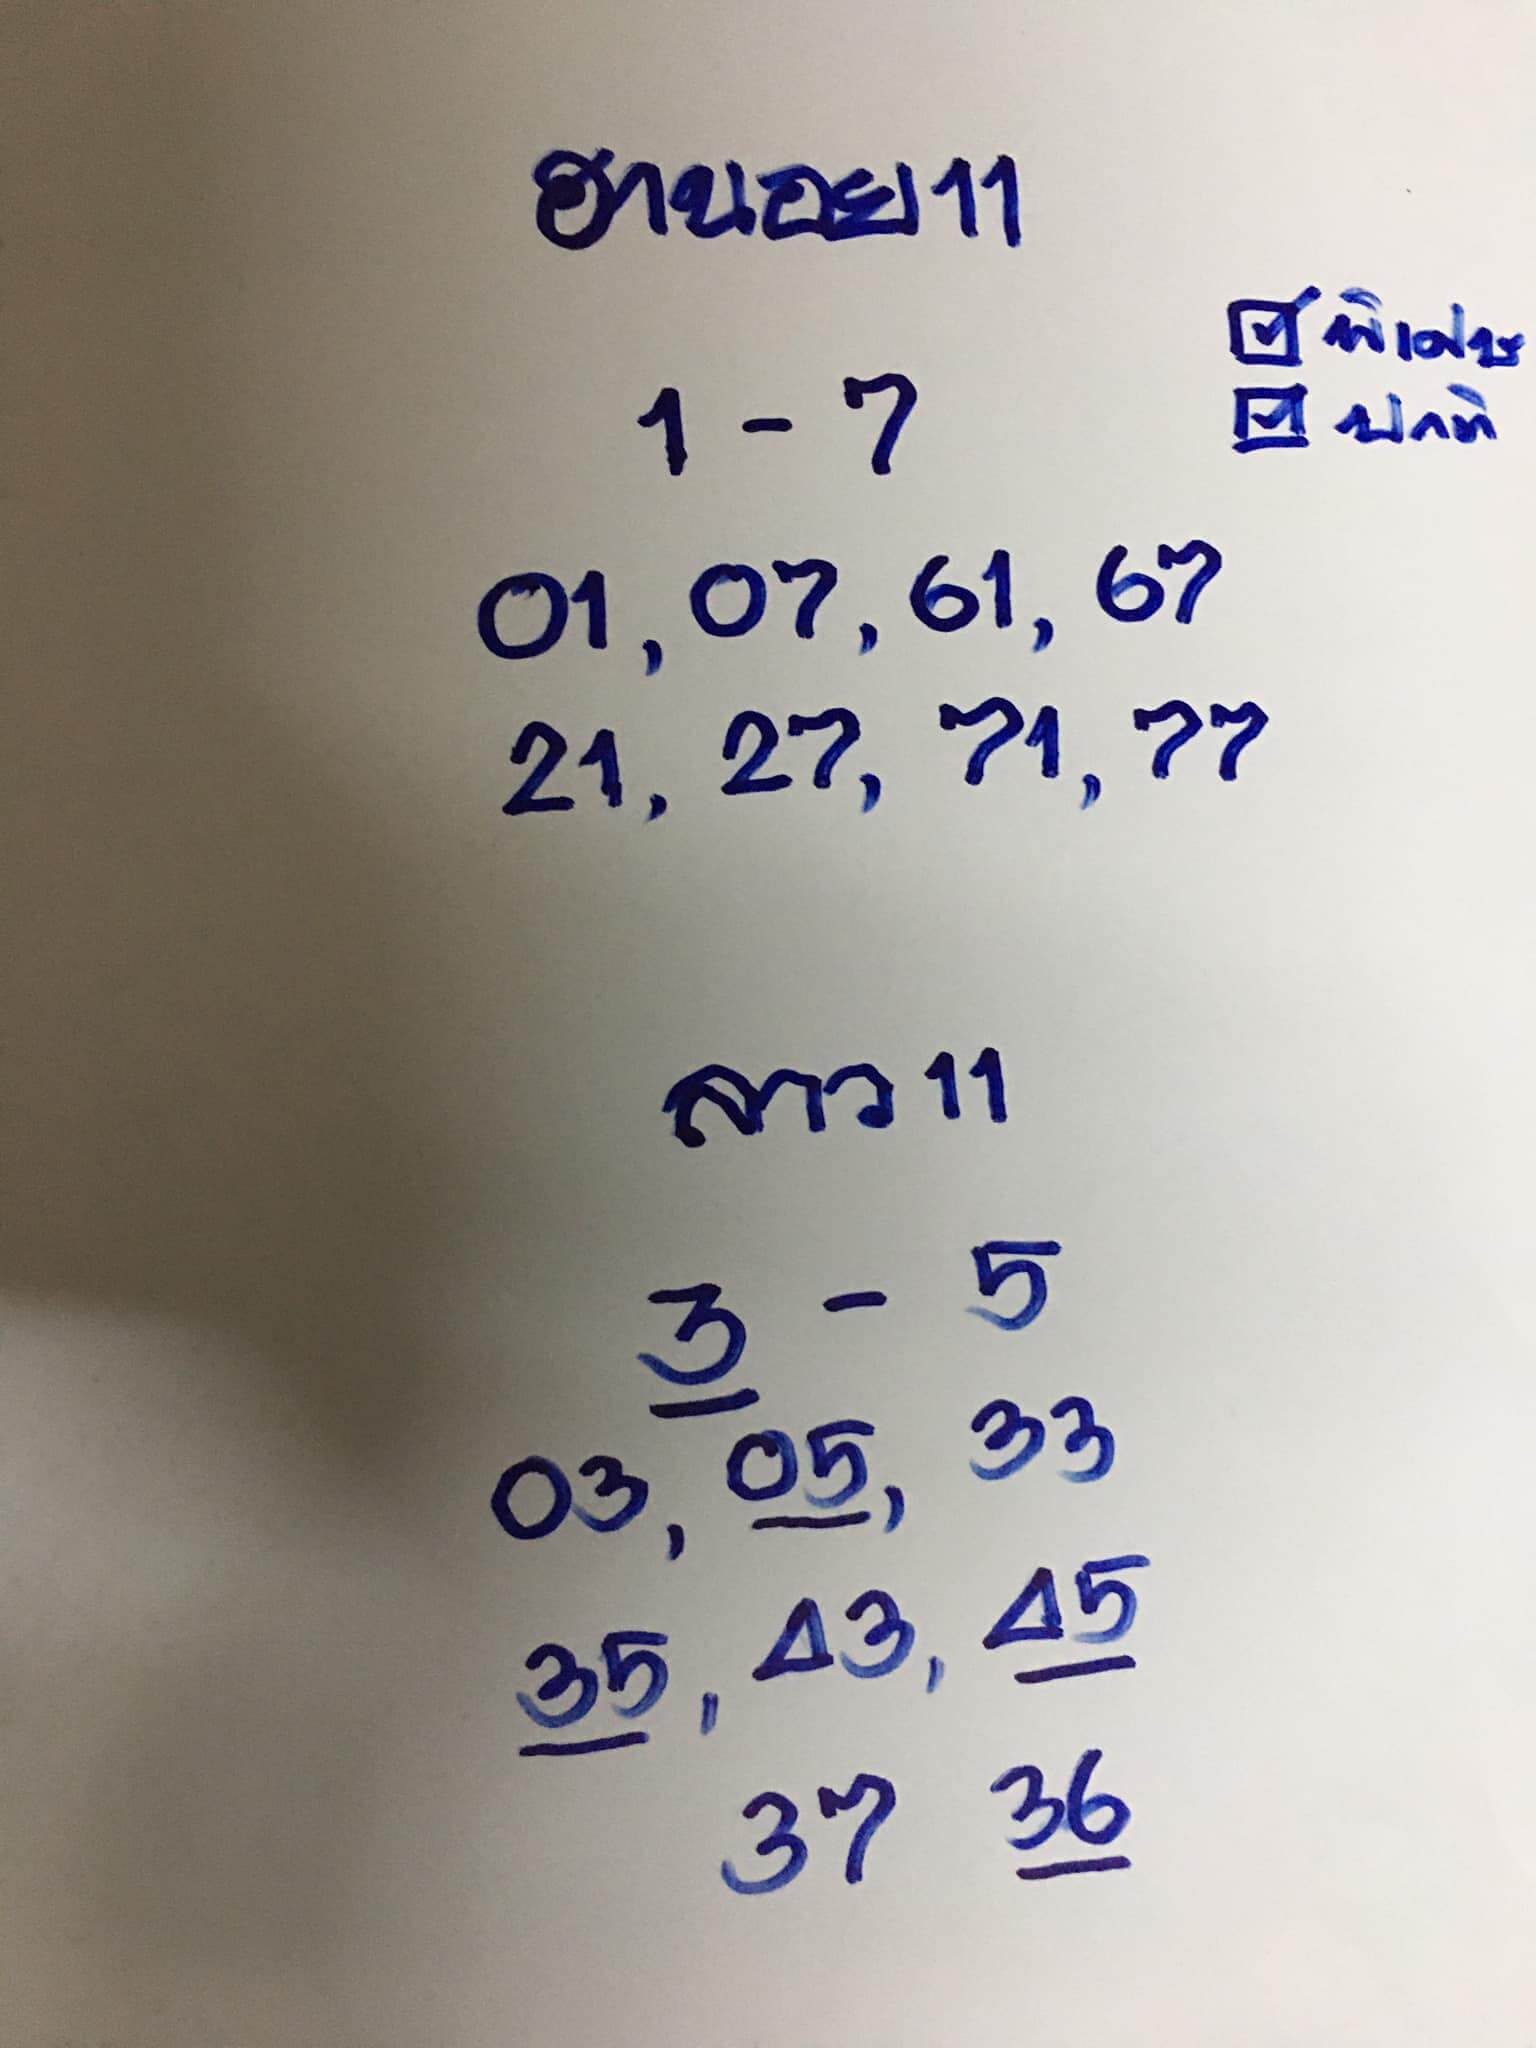 ฮานอย 11
☑ พิเศษ
1 - 7
☑ ปกติ
01, 07, 61, 67
21, 27, 71, 77
ลาว 11
3 - 5
03, 05, 33
35, 43, 45
37 36